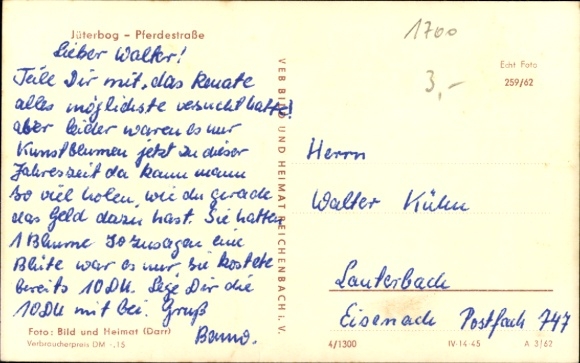 Jüterbog – Pferdestraße
Lieber Walter!
Teile Dir mit, das Renate
alles möglichste versucht hatte!
aber leider waren es nur
Kunstblumen jetzt zu dieser
Jahreszeit da kann mann
so viel holen, wie du gerade
das Geld dazu hast. Sie hatten
1 Blume sozusagen eine
Blüte war es nur, sie kostete
bereits 10 DM. Lege Dir die
10 DM mit bei. Gruß
Benno.
Foto: Bild und Heimat (Darr)
Verbraucherpreis DM -,15
VEB BILD UND HEIMAT REICHENBACH i. V.
1700
3,-
Echt Foto
259/62
Herrn
Walter Kühn
Lauterbach
Eisenach Postfach 747
4/1300
IV-14-45
A 3/62